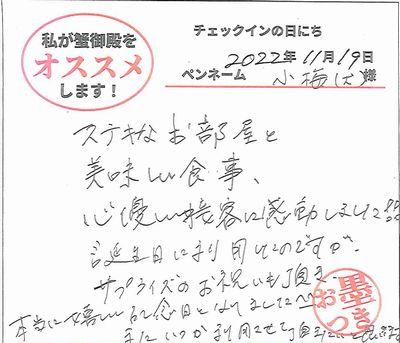 私が蟹御殿を
オススメ
します!
チェックインの日にち
2022年11月19日
ペンネーム 小梅(犬)様
ステキなお部屋と
美味しい食事、
心優しい接客に感動しました
誕生日に利用したのですが、
サプライズのお祝いも頂き
本当に嬉しい記念日となりました〜
またいつか利用させて頂きたいと思います
墨
おつき